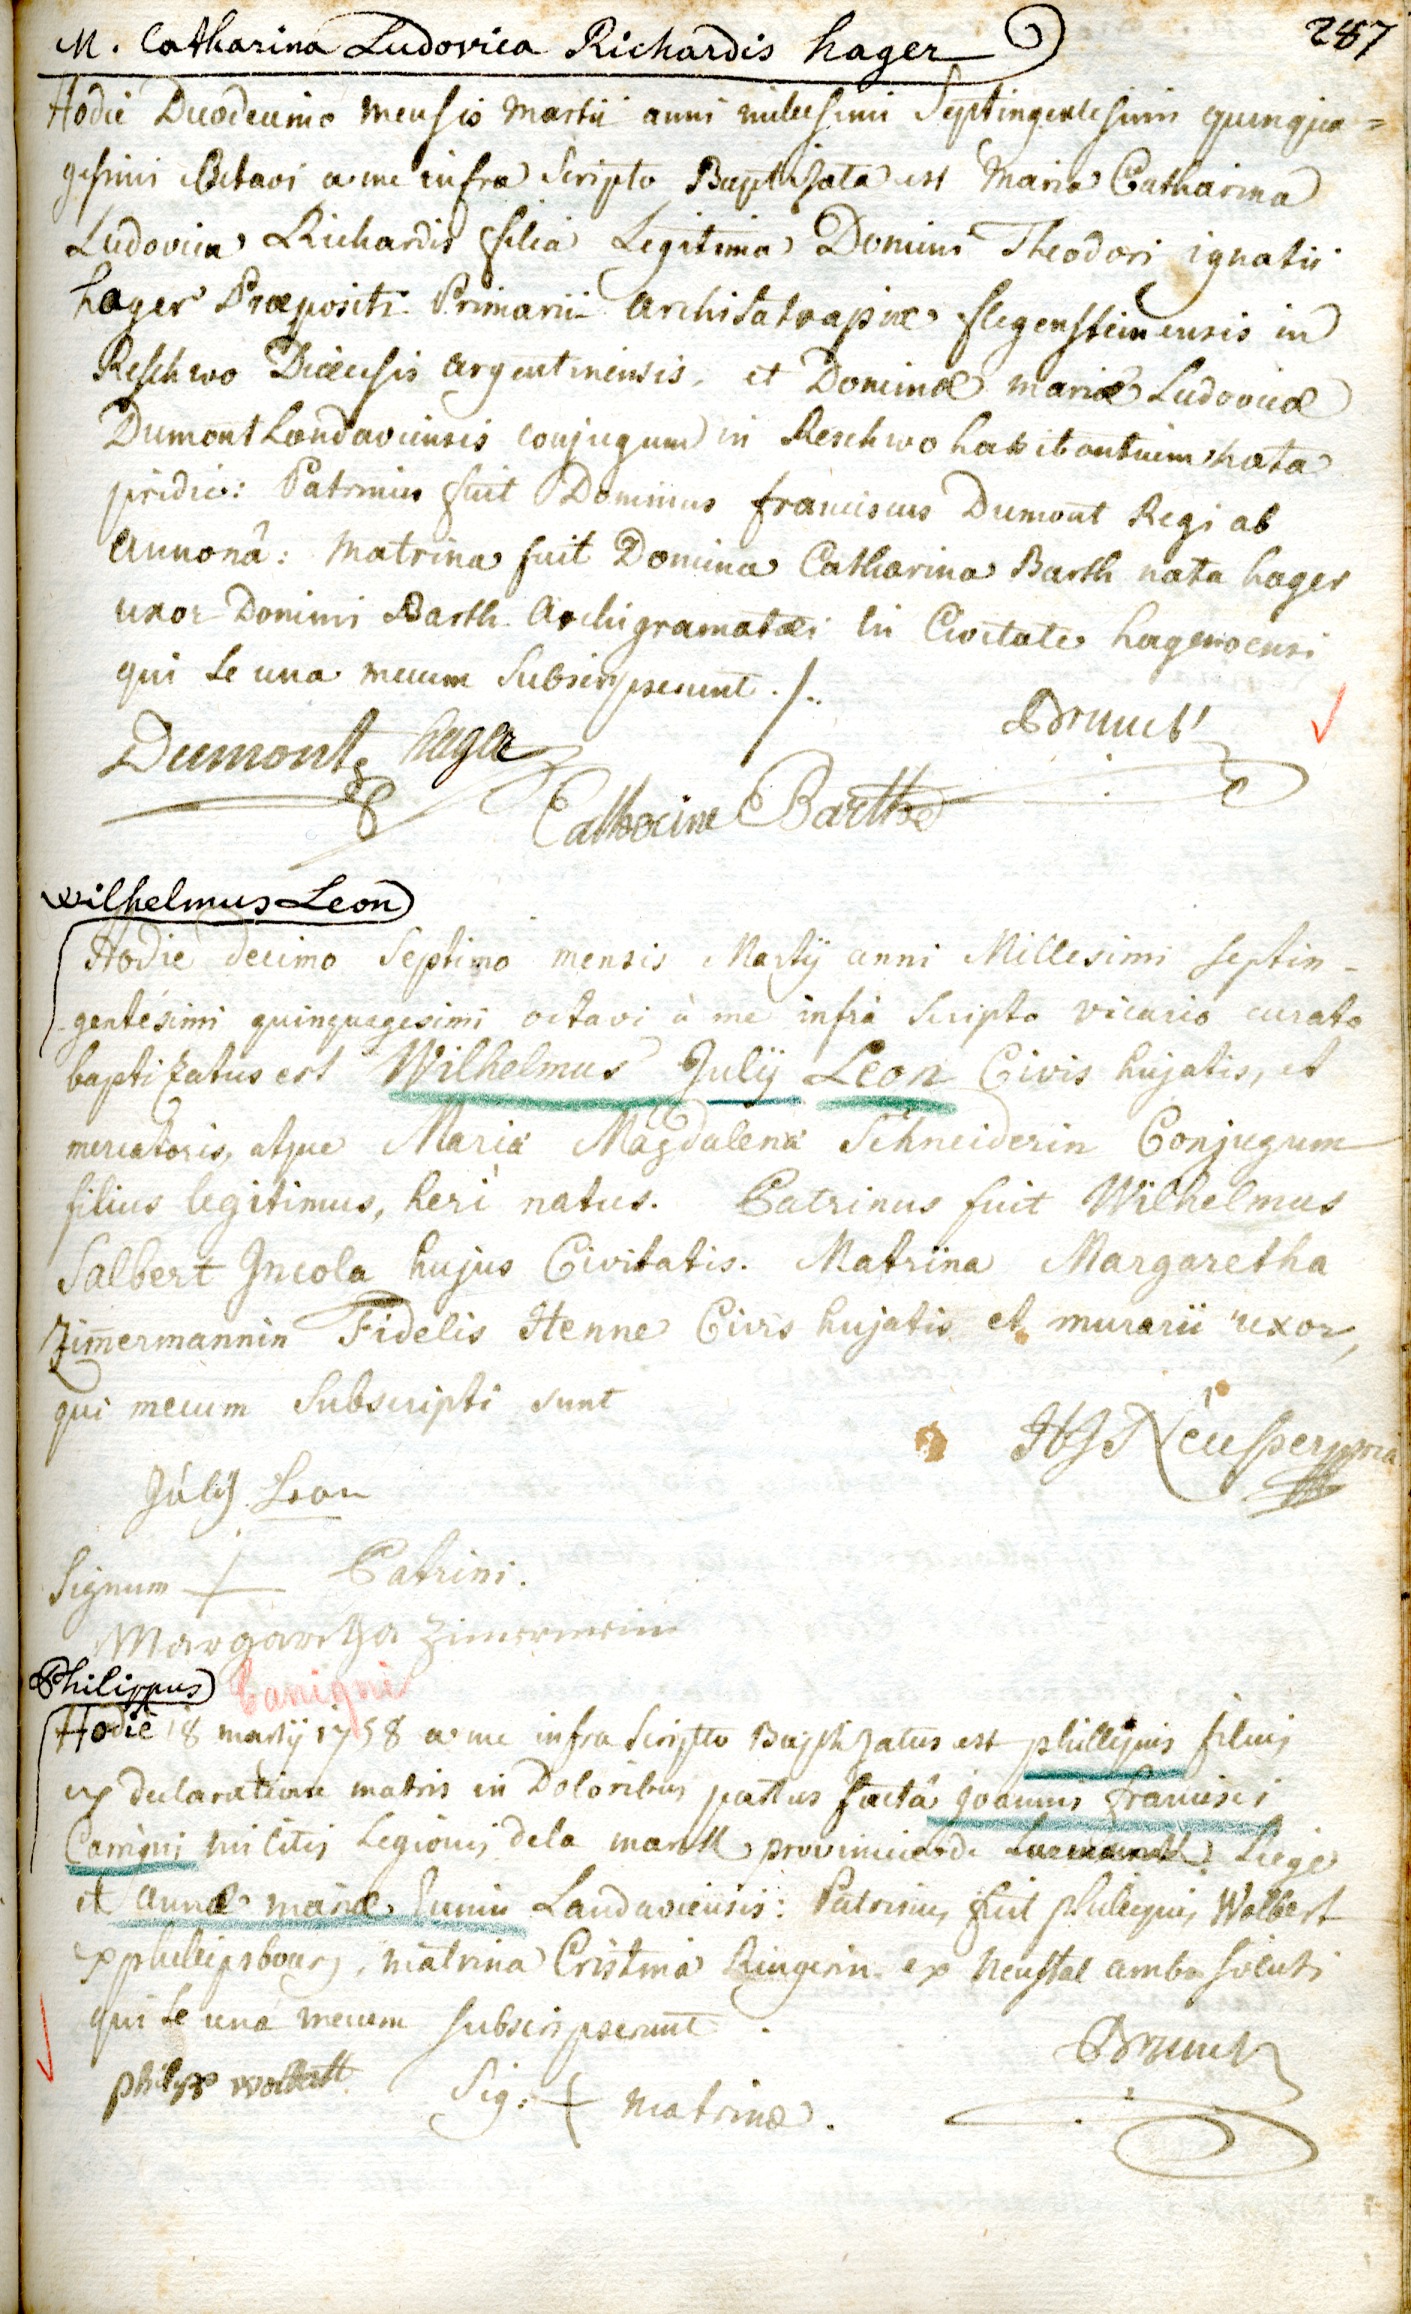 M. Catharina Ludovica Richardis hager
287
Hodie Duodecimo mensis Martii anni millesimi Septingentesimi quinqua=
gesimi Octavi a me infra Scripto Baptizata est Maria Catharina
Ludovica Richardis filia Legitima Domini Theodori ignatii
hager Præpositi Primarii Archisatrapiæ flegensteinensis in
Reschwo Diœcesis argentinensis, et Dominæ mariæ Ludovicæ
Dumont Landaviensis conjugum in Reschwo habitantium nata
pridie: Patrinus fuit Dominus franciscus Dumont Regi ab
Annonâ: Matrina fuit Domina Catharina Barth nata hager
uxor Domini Barth Archigramatæi in Civitate hagenoensi
qui se una mecum Subscripserunt ./.
Dumont hager
Catharine Barthe
Wilhelmus Leon
Hodie decimo Septimo mensis Martij anni Millesimi septin-
gentésimi quinquagesimi octavi à me infrà Scripto vicario curato
baptizatus est Wilhelmus Julij Leon Civis hujatis, et
mercatoris, atque Maria Magdalena Schneiderin Conjugum
filius legitimus, heri natus. Patrinus fuit Wilhelmus
Salbert Incola hujus Civitatis. Matrina Margaretha
Zim̄ermannin Fidelis Henne Civis hujatis et murarii uxor,
qui mecum Subscripti sunt
Júlÿ Leon
Signum + Patrini.
Margaretha
Philippus Canigni
Hodie 18 martij 1758 a me infra Scripto Baptizatus est phillipus filius
ex declaratione matris in Doloribus partus factâ joannis francisci
Canigni militis Legionis dela marck provinciæ de Liege
et annæ mariæ Landaviensis: Patrinus fuit philippus Wolbert
ex phillipsbourg, matrina Cristina Ringerin ex Neustat ambo soluti
qui se una mecum subscripserunt.
philipp
Sig: + matrinæ.